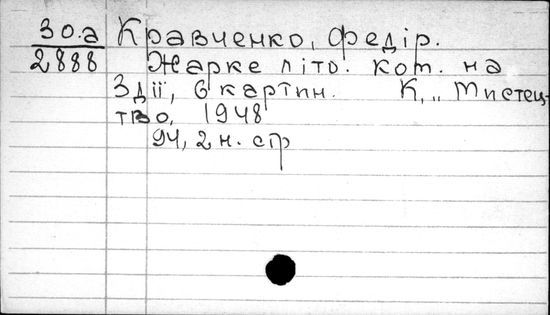 30.а Кравченко, Федір.
2888 Жарке літо. ком. на
3 дії, 6 картин. К., „Мистец-
тво, 1948
94, 2 н. стр